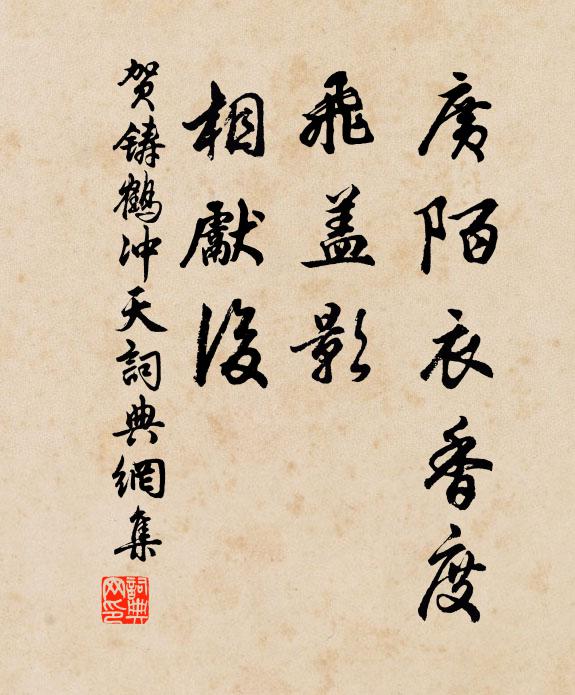 廣陌衣香度
飛盖影
相獻後
贺鑄鶴冲天詞典網集
詞典网印